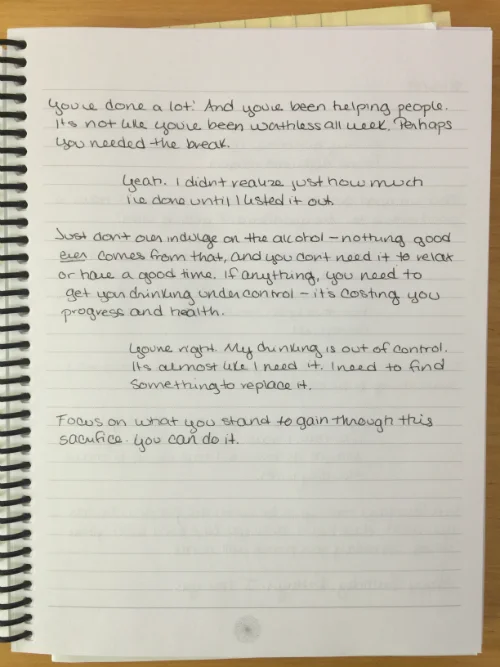 You've done a lot! And you've been helping people.
It's not like you've been worthless all week. Perhaps
you needed the break.
Yeah. I didn't realize just how much
I've done until I listed it out.
Just don't over indulge on the alcohol – nothing good
ever comes from that, and you don't need it to relax
or have a good time. If anything, you need to
get your drinking under control – it's costing you
progress and health.
You're right. My drinking is out of control.
It's almost like I need it. I need to find
something to replace it.
Focus on what you stand to gain through this
sacrifice. You can do it.